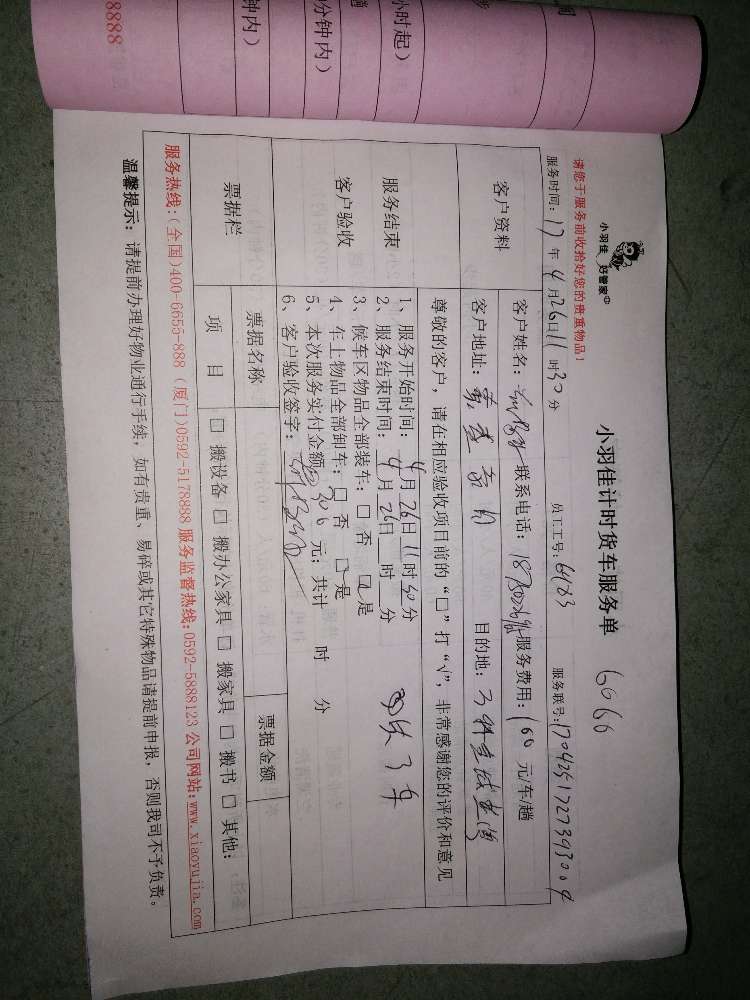 小时起）
分钟内）
钟内）
8888
小羽佳 好管家
小羽佳计时货车服务单 6066
请您于服务前收拾好您的贵重物品！
服务时间：17年4月26日11时30分 员工工号：6483 服务联号：1704251727393009
客户资料
客户姓名： 联系电话： 服务费用：160元/车/趟
客户地址： 目的地：
尊敬的客户，请在相应验收项目前的“□”打“√”，非常感谢您的评价和意见
服务结束
客户验收
1、服务开始时间：4月26日11时30分
2、服务结束时间：4月26日 时 分
3、候车区物品全部装车：□否 □是
4、车上物品全部卸车：□否 □是
5、本次服务实付金额： 元；共计 时 分
6、客户验收签字：
票据栏
票据名称 票据金额
项目 □搬设备 □搬办公家具 □搬家具 □搬书 □其他：
服务热线：(全国)400-6655-888 (厦门)0592-5178888 服务监督热线：0592-5888123 公司网站：www.xiaoyujia.com
温馨提示：请提前办理好物业通行手续，如有贵重、易碎或其它特殊物品请提前申报，否则我司不予负责。